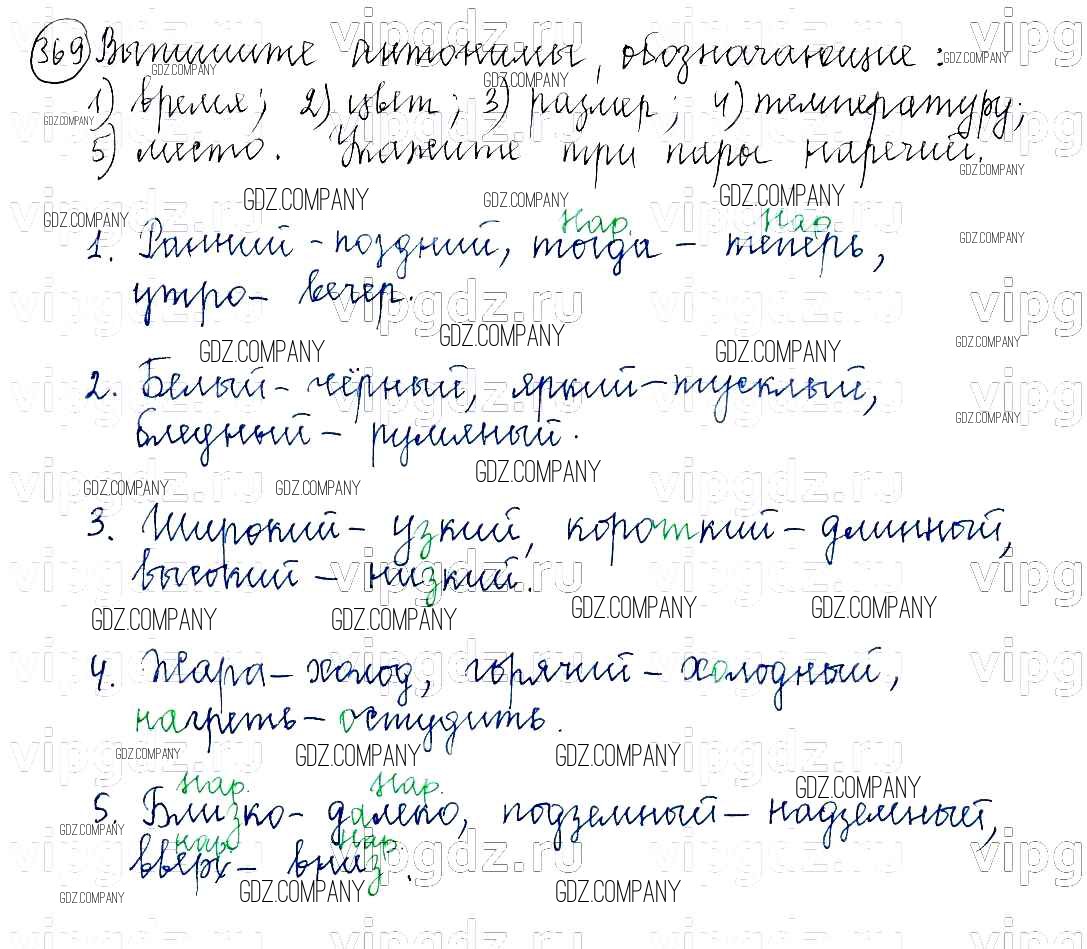 369 Выпишите антонимы, обозначающие:
1) время; 2) цвет; 3) размер; 4) температуру;
5) место. Укажите три пары наречий.
Нар. Нар.
1. Ранний - поздний, тогда - теперь,
утро - вечер.
2. Белый - чёрный, яркий - тусклый,
бледный - румяный.
3. Широкий - узкий, короткий - длинный,
высокий - низкий.
4. Жара - холод, горячий - холодный,
нагреть - остудить.
Нар. Нар.
5. Близко - далеко, подземный - надземный,
нар. нар.
вверх - вниз.
GDZ.COMPANY
vipgdz.ru